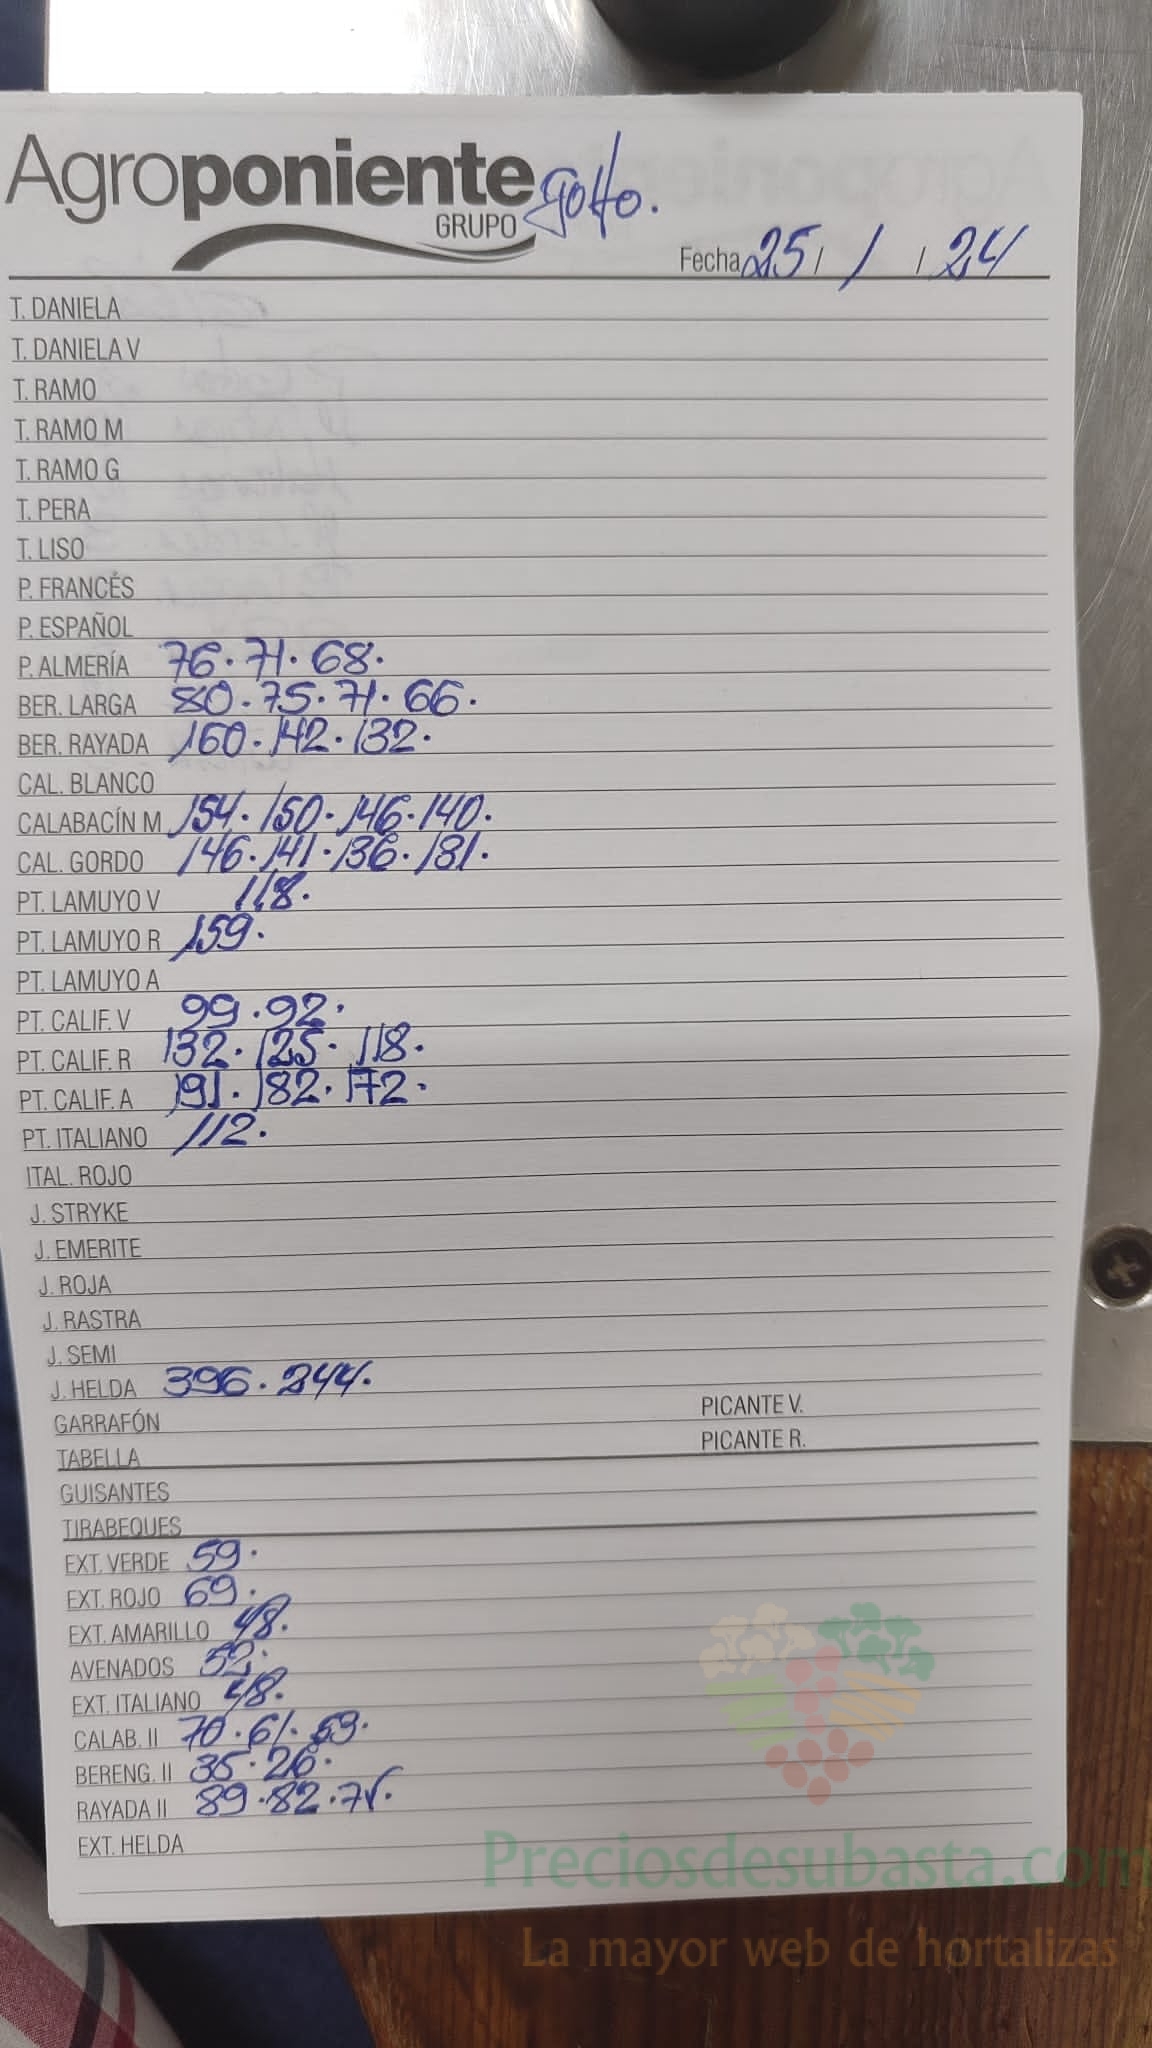 Agroponiente
GRUPO
Golfo.
Fecha 25 / 1 / 24
T. DANIELA
T. DANIELA V
T. RAMO
T. RAMO M
T. RAMO G
T. PERA
T. LISO
P. FRANCÉS
P. ESPAÑOL
P. ALMERÍA 76. 71. 68.
BER. LARGA 80. 75. 71. 66.
BER. RAYADA 160. 142. 132.
CAL. BLANCO
CALABACÍN M 154. 150. 146. 140.
CAL. GORDO 146. 141. 136. 131.
PT. LAMUYO V 118.
PT. LAMUYO R 159.
PT. LAMUYO A
PT. CALIF. V 99. 92.
PT. CALIF. R 132. 125. 118.
PT. CALIF. A 191. 182. 172.
PT. ITALIANO 112.
ITAL. ROJO
J. STRYKE
J. EMERITE
J. ROJA
J. RASTRA
J. SEMI
J. HELDA 396. 244.
GARRAFÓN PICANTE V.
TABELLA PICANTE R.
GUISANTES
TIRABEQUES
EXT. VERDE 59.
EXT. ROJO 69.
EXT. AMARILLO 48.
AVENADOS 52.
EXT. ITALIANO 48.
CALAB. II 70. 61. 59.
BERENG. II 35. 26.
RAYADA II 89. 82. 75.
EXT. HELDA
Preciosdesubasta.com
La mayor web de hortalizas